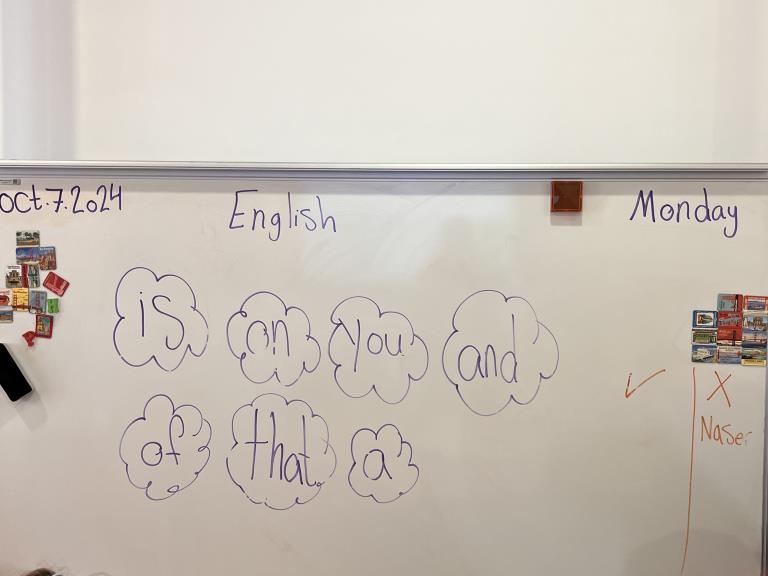 oct.7.2024 English Monday
is on you and
of that a
✓ X
Naser